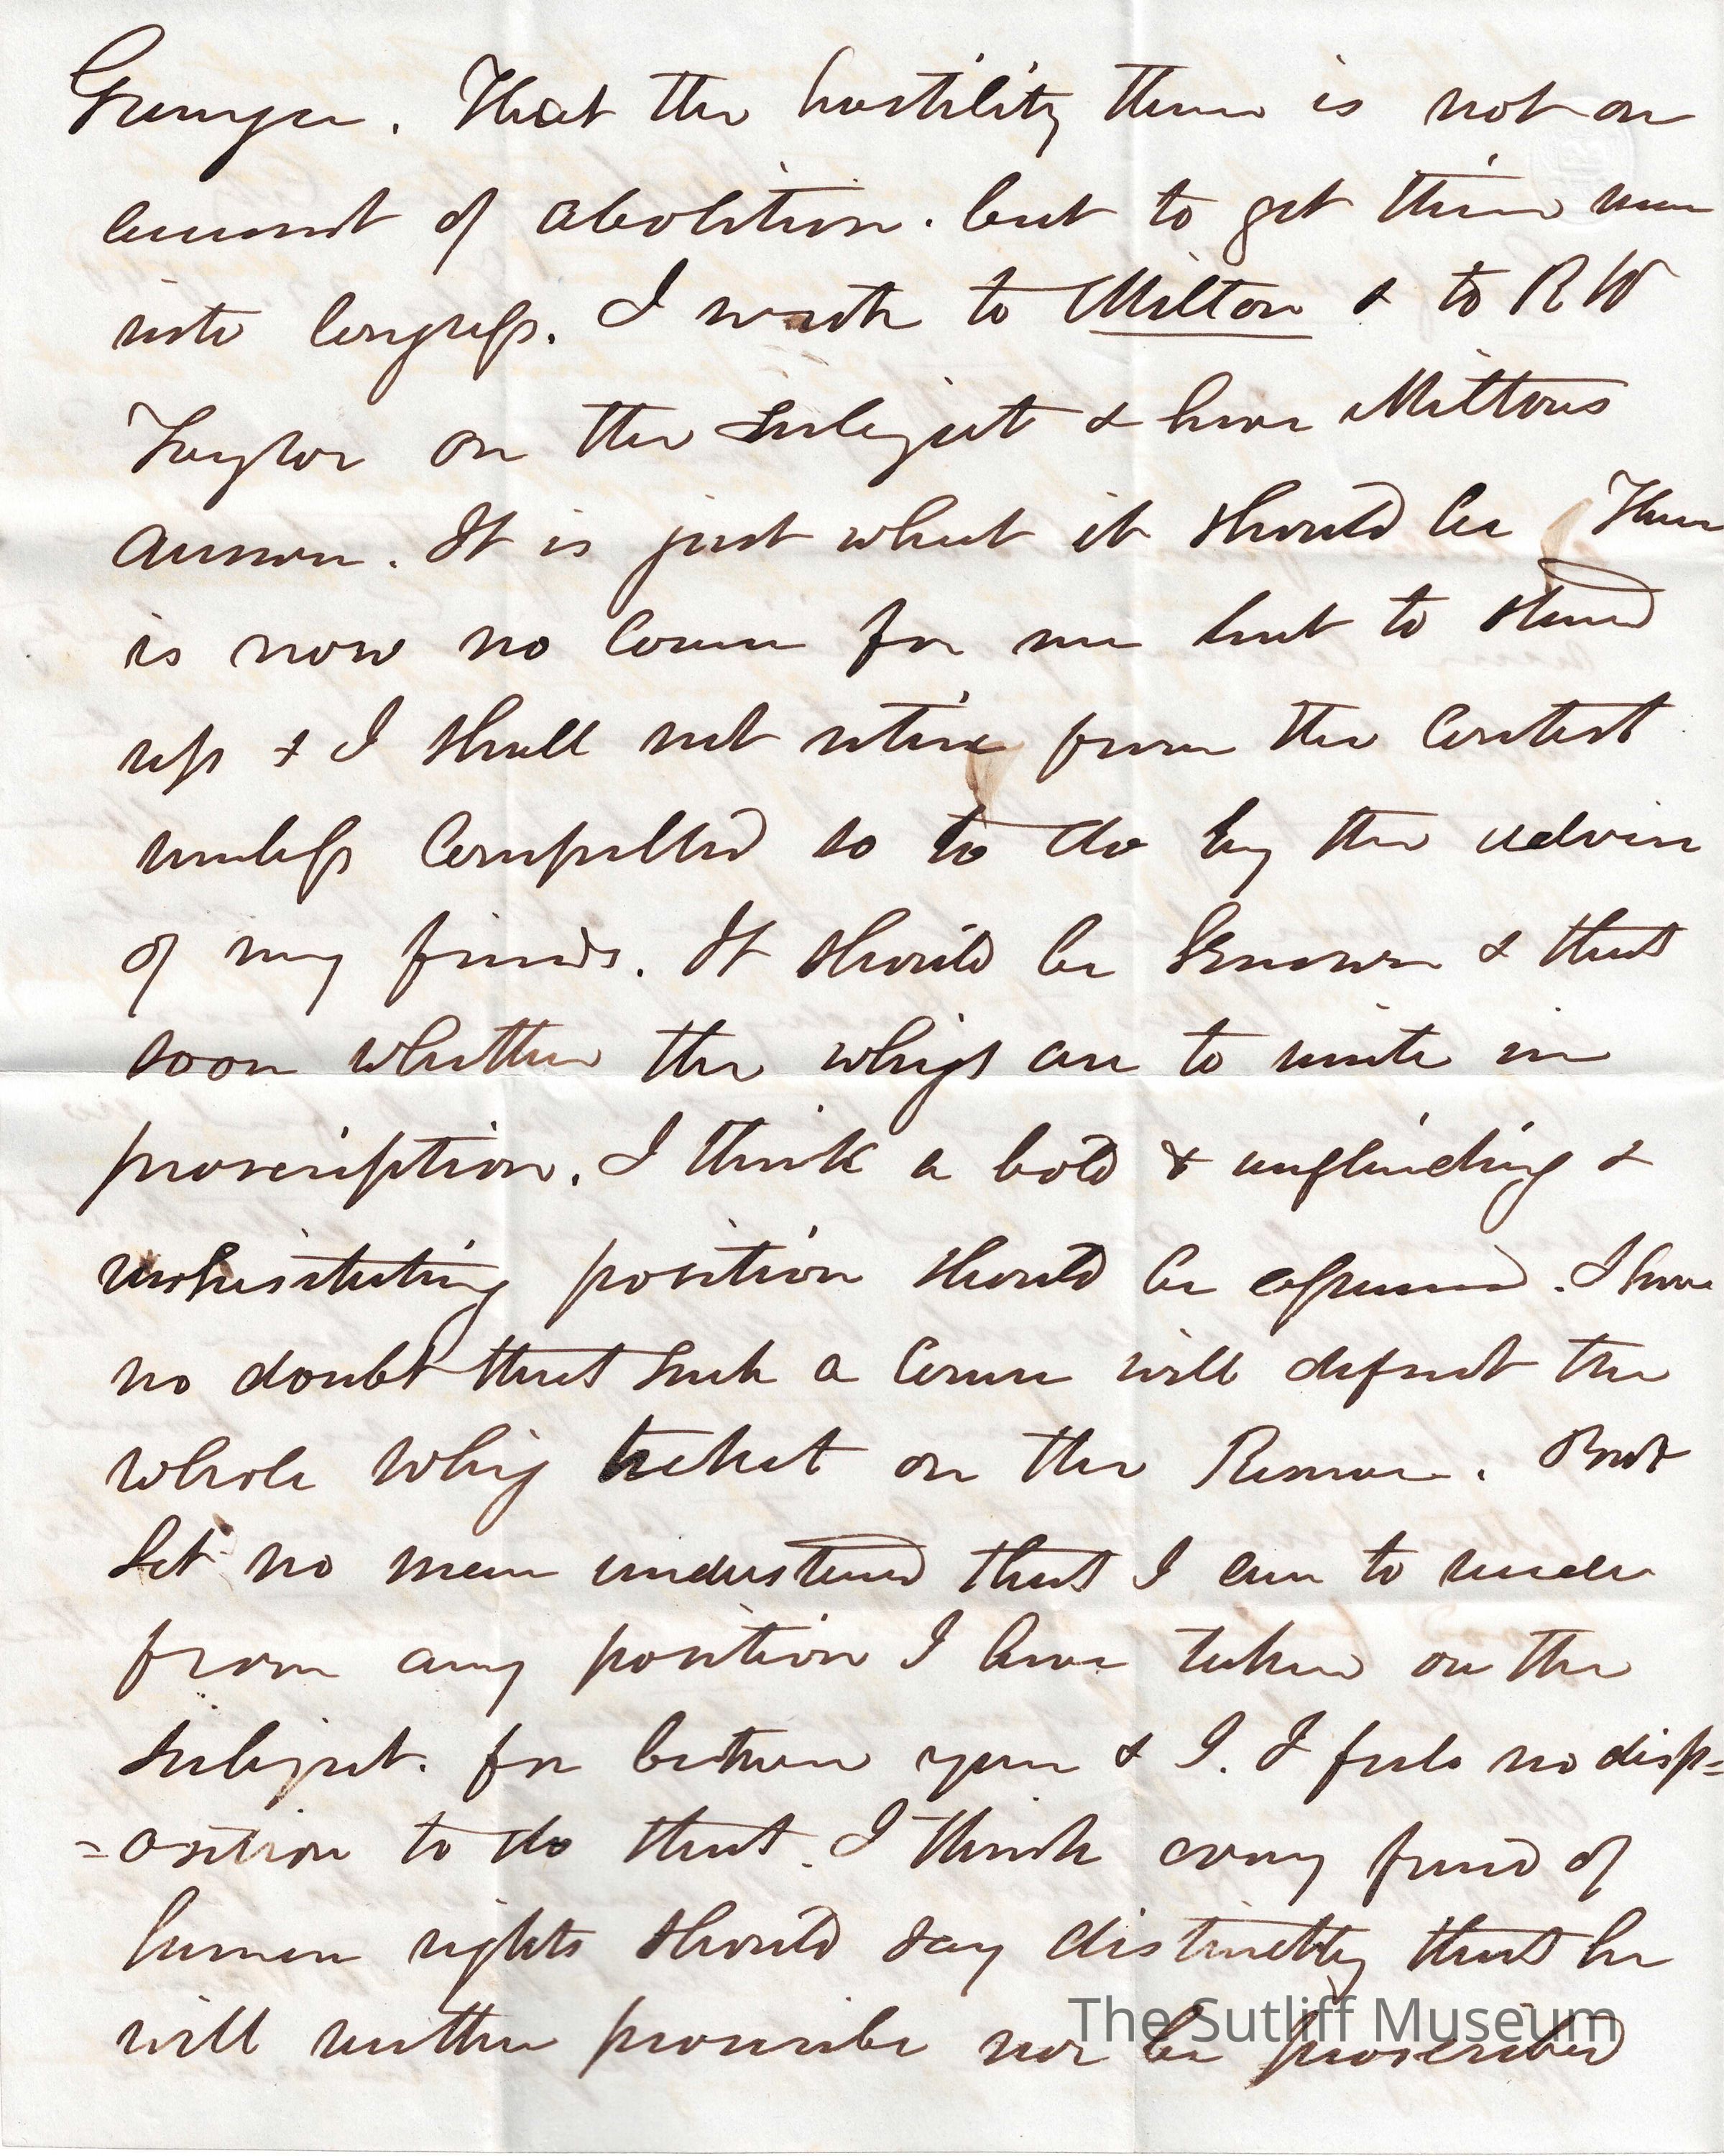 Granger. That the hostility there is not on
account of abolition. but to get their man
into Congress. I wrote to Milton & to R W
Taylor on the subject & have Miltons
answer. It is just what it should be There
is now no course for me but to stand
up & I shall not retire from the contest
unless compelled so to do by the advice
of my friends. It should be known & that
soon whether the whigs are to unite in
proscription. I think a bold & unflinching &
unhesitating position should be assumed. I have
no doubt that such a course will defeat the
whole whig ticket on the Reserve. But
let no man understand that I am to recede
from any position I have taken on the
subject. for between you & I. I feel no disp=
=osition to do that. I think every friend of
human rights should say distinctly that he
will neither proscribe nor be proscribed
The Sutliff Museum